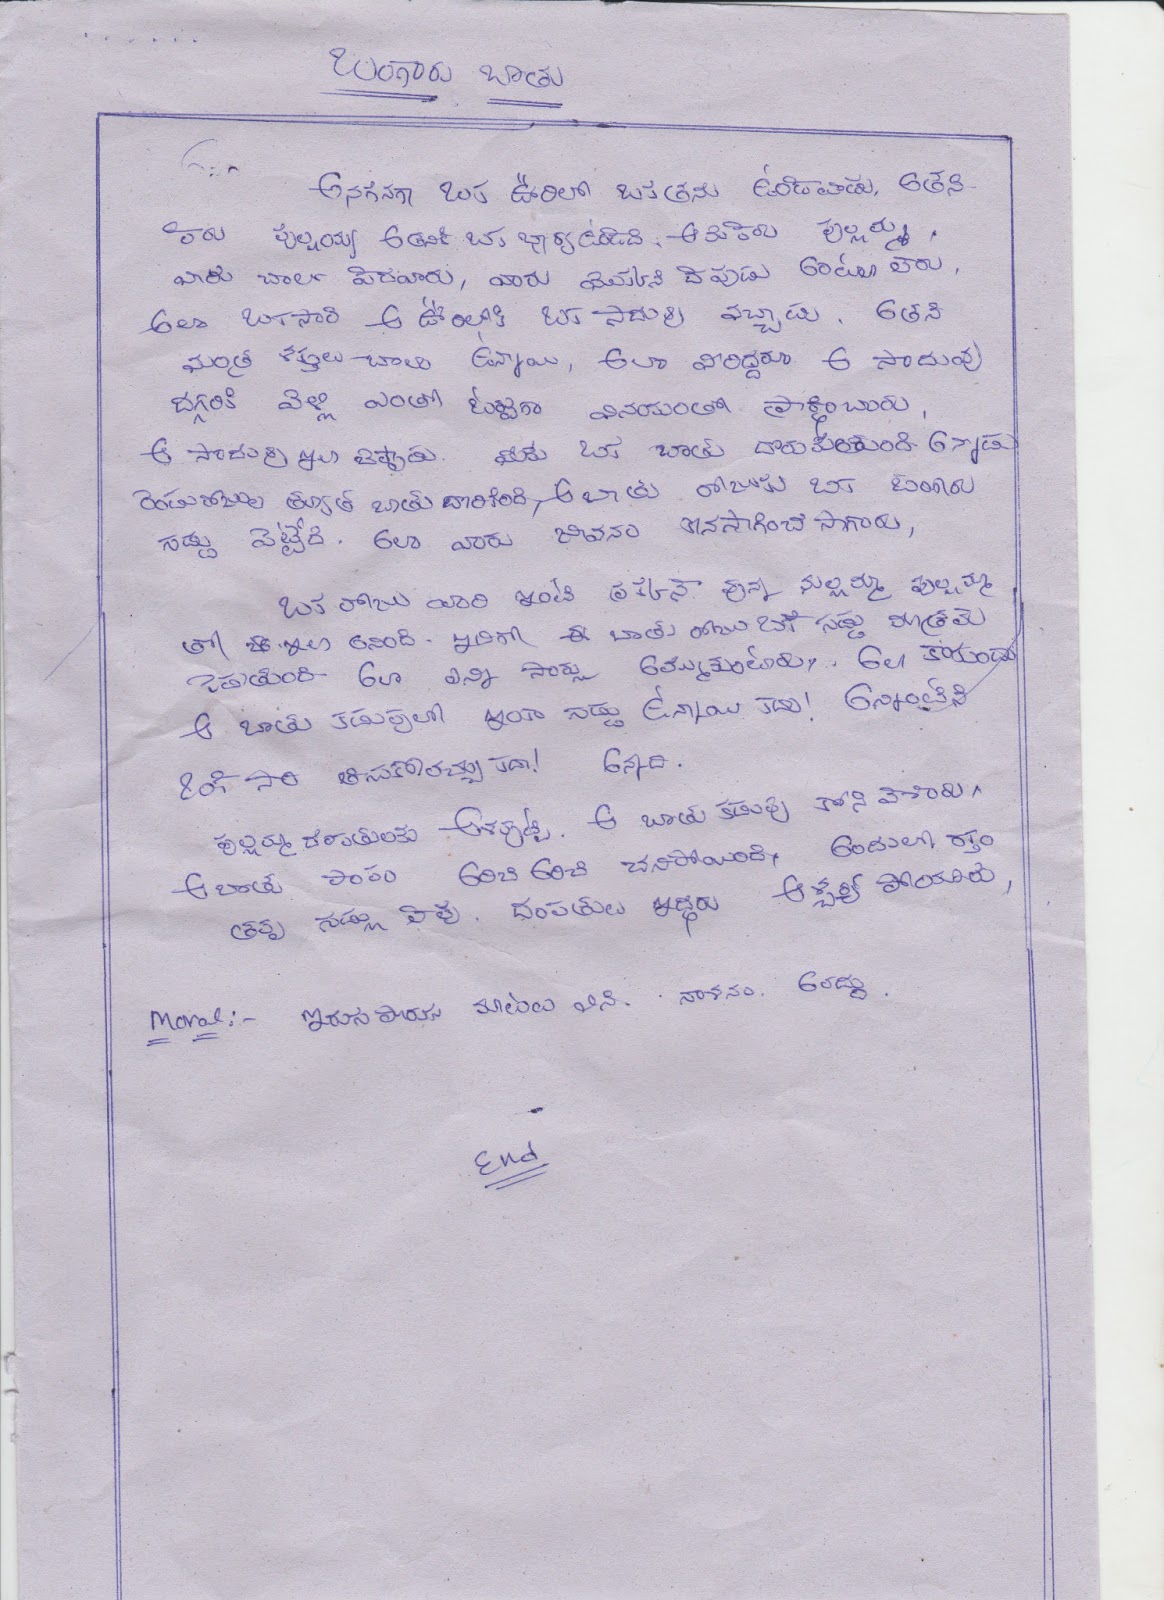 బంగారు బాతు
అనగనగా ఒక ఊరిలో ఒకతను ఉండేవాడు. అతని
పేరు పుల్లయ్య అతనికి ఒక భార్య ఉండేది. ఆమె పేరు పుల్లమ్మ,
వారు చాలా పేదవారు, వారు
అలా ఒకసారి ఆ ఊరిలోకి ఒక సాదువు వచ్చాడు. అతని
మంత్ర శక్తులు చాలా ఉన్నాయి, అలా వీరిద్దరూ ఆ సాదువు
దగ్గరికి వెళ్ళి ఎంతో వినయంతో
ఆ సాదువు ఇలా చెప్పాడు. మీకు ఒక బాతు దొరుకుతుంది అన్నాడు
రెండురోజుల తర్వాత బాతు దొరికింది, ఆ బాతు రోజుకు ఒక బంగారు
గుడ్డు పెట్టేది. అలా వారు జీవనం కొనసాగించే సాగారు,
ఒక రోజు వారి ఇంటి పక్కనే వున్న పుల్లమ్మ
తో ఇలా అనింది. ఇదిగో ఈ బాతు రోజు ఒకే గుడ్డు మాత్రమే
పెడుతుంది అలా ఎన్ని సార్లు అమ్ముకుంటారు, అలా కాకుండా
ఆ బాతు కడుపులో ఇంకా గుడ్లు ఉన్నాయి కదా! అన్నింటిని
ఒకే సారి తీసుకోవచ్చు కదా! అన్నది.
పుల్లమ్మ దంపతులకు ఆశపుట్టి. ఆ బాతు కడుపు కోసి వేశారు,
ఆ బాతు పాపం అరిచి అరిచి చనిపోయింది, అందులో రక్తం
తప్ప గుడ్లు లేవు. దంపతులు ఇద్దరు ఆశ్చర్య పోయారు,
Moral:- ఇరుగ పొరుగ మాటలు విని. నాశనం. అవద్దు.
End